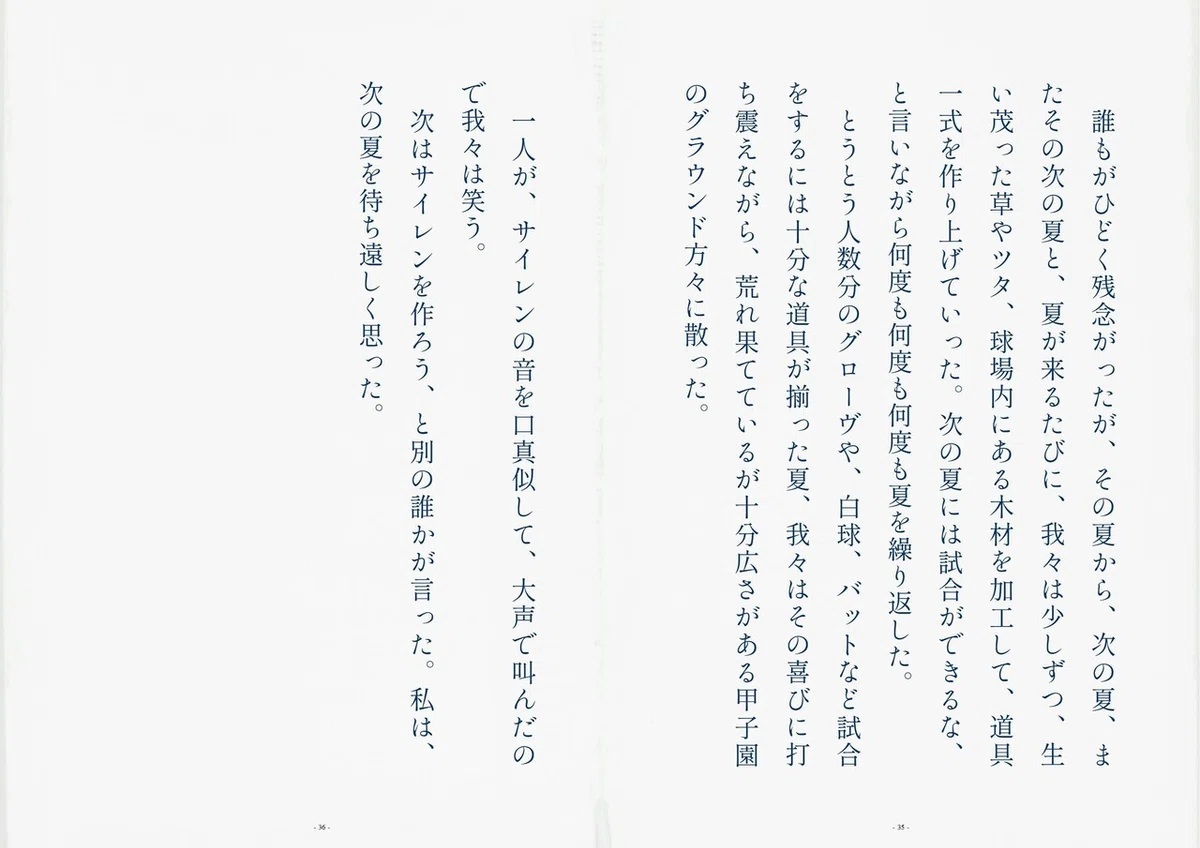 誰もがひどく残念がったが、その夏から、次の夏、ま
たその次の夏と、夏が来るたびに、我々は少しずつ、生
い茂った草やツタ、球場内にある木材を加工して、道具
一式を作り上げていった。次の夏には試合ができるな、
と言いながら何度も何度も何度も夏を繰り返した。
とうとう人数分のグローヴや、白球、バットなど試合
をするには十分な道具が揃った夏、我々はその喜びに打
ち震えながら、荒れ果てているが十分広さがある甲子園
のグラウンド方々に散った。
- 35 -
一人が、サイレンの音を口真似して、大声で叫んだの
で我々は笑う。
次はサイレンを作ろう、と別の誰かが言った。私は、
次の夏を待ち遠しく思った。
- 36 -